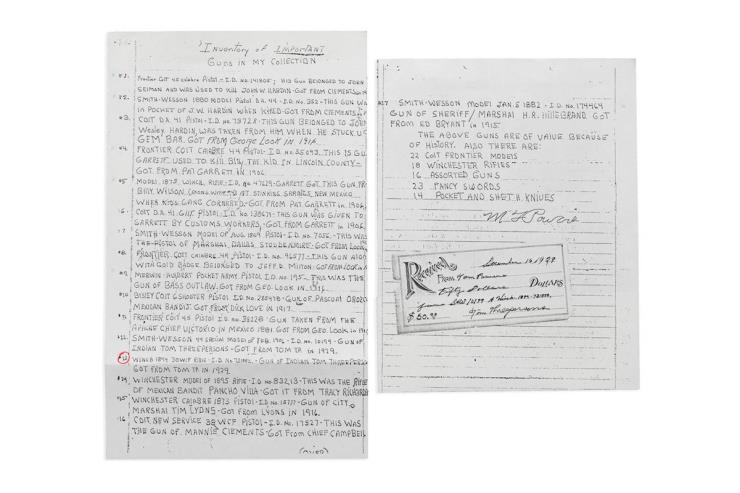 Inventory of IMPORTANT
GUNS IN MY COLLECTION
#1. Frontier Colt 45 calibre Pistol - I.D. No. 141805; this gun belonged to John
SELMAN AND WAS USED TO KILL JOHN W. HARDIN - GOT FROM CLEMENTS IN
#2. SMITH-WESSON 1880 MODEL PISTOL DA. 44 - I.D. No. 352 - THIS GUN WAS
IN POCKET OF J.W. HARDIN WHEN KILLED - GOT FROM CLEMENTS
#3. COLT D.A. 41 PISTOL - I.D. No. 73728 - THIS GUN BELONGED TO JOHN
WESLEY HARDIN, WAS TAKEN FROM HIM WHEN HE STUCK UP
GEM BAR. GOT FROM GEORGE LOOK IN 1914
#4. FRONTIER COLT CALBRE 44 PISTOL - I.D. No. 55093. THIS IS GUN
GARRETT USED TO KILL BILLY THE KID IN LINCOLN COUNTY -
GOT FROM PAT GARRETT IN 1906
#5 MODEL, 1873, WINCH, RIFLE - I.D. No. 47629 - GARRETT GOT THIS GUN FR
BILLY WILSON, AT STINKING SPRINGS, NEW MEXICO
WHEN KIDS GANG CORNERED - GOT FROM PAT GARRETT IN 1906
#6 COLT D.A. 41 PISTOL - I.D. No. 138671 - THIS GUN WAS GIVEN TO
GARRETT BY CUSTOMS WORKERS - GOT FROM GARRETT IN 1906
#7 SMITH-WESSON 44 MODEL PISTOL - I.D. No. 7056 - THIS WAS
THE PISTOL OF MARSHAL DALLAS STOUDENMIRE - GOT FROM LOOK
#8 FRONTIER COLT CALBRE 44, PISTOL - I.D. No. 96577 - THIS GUN ALONG
WITH GOLD BADGE BELONGED TO JEFF D. MILTON - GOT FROM LOOK IN
#9 MERWIN-HULBERT POCKET ARMY PISTOL I.D. No. 195 - THIS WAS THE
GUN OF BASS OUTLAW - GOT FROM GEO. LOOK IN 1916
#10 BISLEY COLT 6 SHOOTER PISTOL I.D. No. 286498 - GUN OF PASCUAL OROZCO
MEXICAN BANDIT. GOT FROM DICK LOVE IN 1917
#11 FRONTIER COLT 45 PISTOL I.D. No. 38128 GUN TAKEN FROM THE
APACHE CHIEF VICTORIO IN MEXICO 1881. GOT FROM GEO. LOOK IN
#12. SMITH-WESSON 44 MODEL OF FEB. 1906 - I.D. No. 10199 - GUN OF
INDIAN TOM THREEPERSONS - GOT FROM TOM T.P. IN 1929.
#13 WINCH 1894 30WCF RIFLE - I.D. No. - GUN OF INDIAN TOM THREEPERSONS
GOT FROM TOM T.P. IN 1929.
#14 WINCHESTER MODEL OF 1895 RIFLE - I.D. No. 83213 - THIS WAS THE RIFLE
OF MEXICAN BANDIT PANCHO VILLA - GOT IT FROM TRACY RICHARDS
#15 WINCHESTER CALABRE 1873 PISTOL - I.D. No. 15777 - GUN OF CITY
MARSHAL TIM LYONS - GOT FROM LYONS IN 1916.
#16 COLT NEW SERVICE 38 WCF PISTOL - I.D. No. 17527 - THIS WAS
THE GUN OF MANNIE CLEMENTS - GOT FROM CHIEF CAMPBELL
(over)
#17 SMITH-WESSON MODEL JAN. 5 1882 - I.D. No. 174464
GUN OF SHERIFF/MARSHAL H.R. HILLEBRAND GOT
FROM ED BRYANT IN 1915
THE ABOVE GUNS ARE OF VALUE BECAUSE
OF HISTORY. ALSO THERE ARE:
22 COLT FRONTIER MODELS
18 WINCHESTER RIFLES
16 ASSORTED GUNS
23 FANCY SWORDS
14 POCKET AND SHETH KNIVES
Received
December 16 1929
FROM Tom Powers
Fifty Dollars
DOLLARS
$50.00
Tom Threepersons